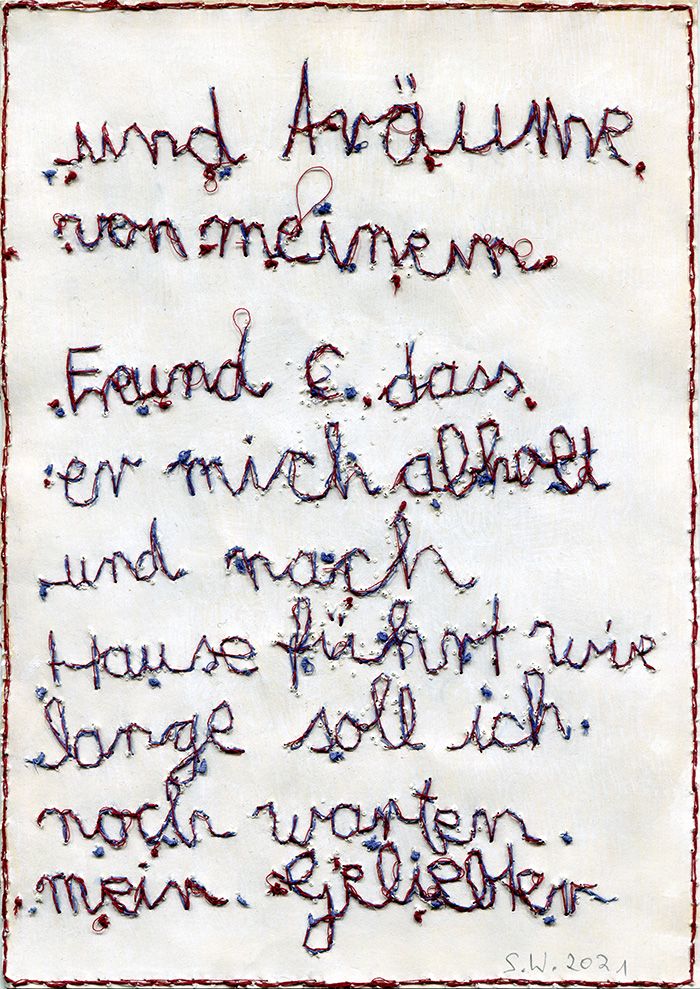 und träume
von meinem
Freund C. dass
er mich abholt
und nach
Hause führt wie
lange soll ich
noch warten
mein Geliebter
S.W. 2021